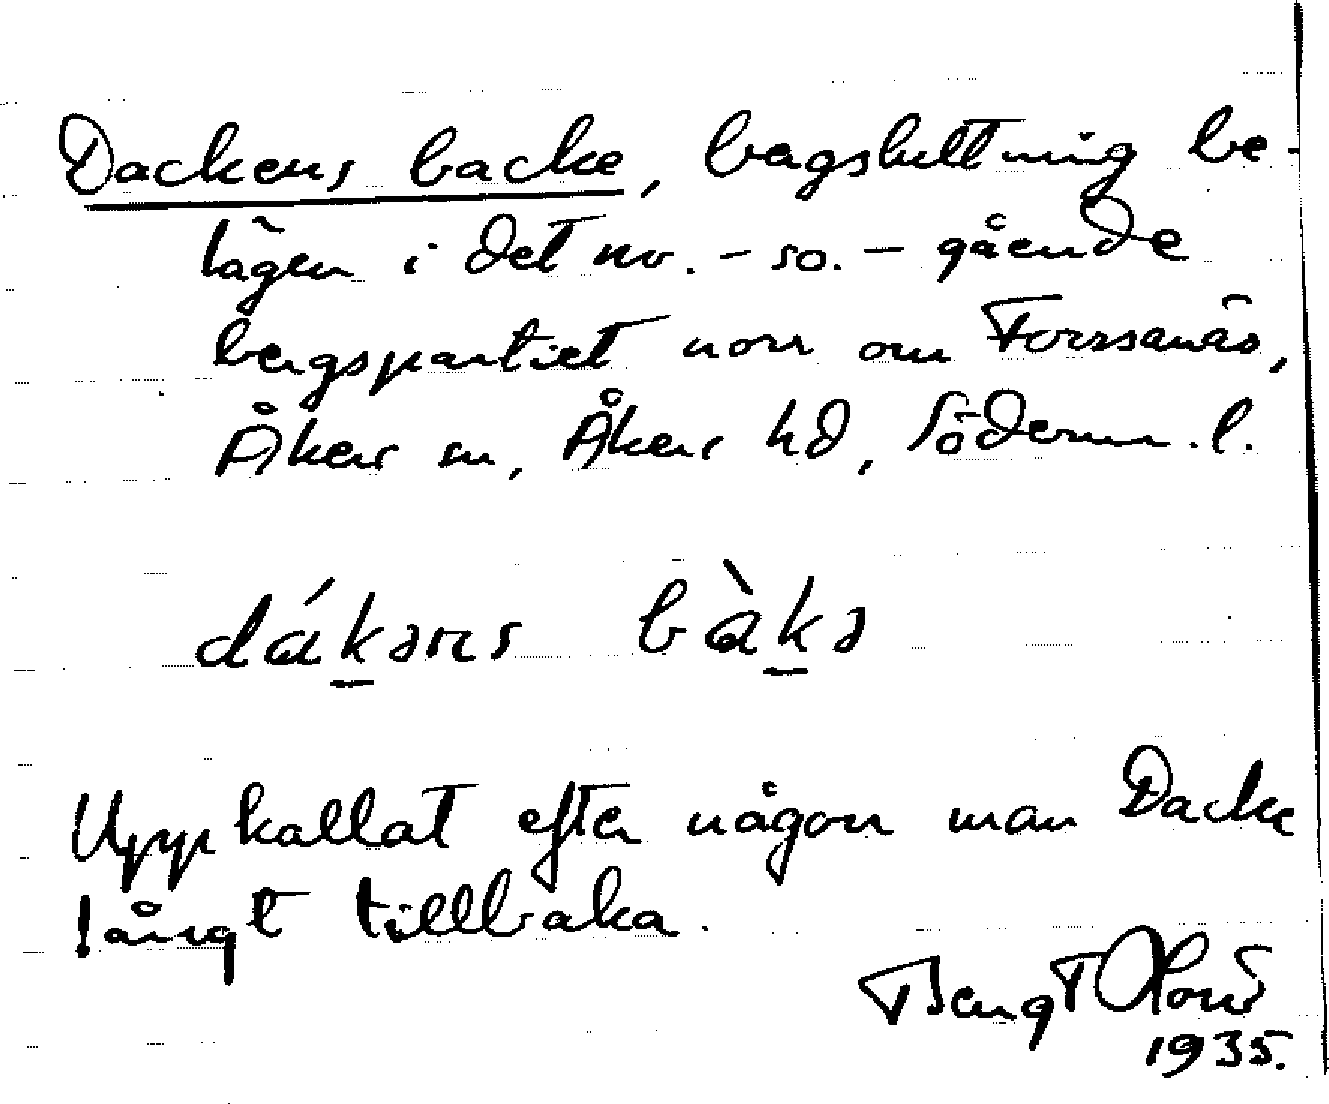 Dackens backe, bergsluttning be-
lägen i det nv. - so. - gående
bergspartiet norr om Forssanäs,
Åkers sn, Åkers hd, Söderm. l.
dákəns bàkə
Uppkallat efter någon man Dacke
långt tillbaka.
Bengt
1935.